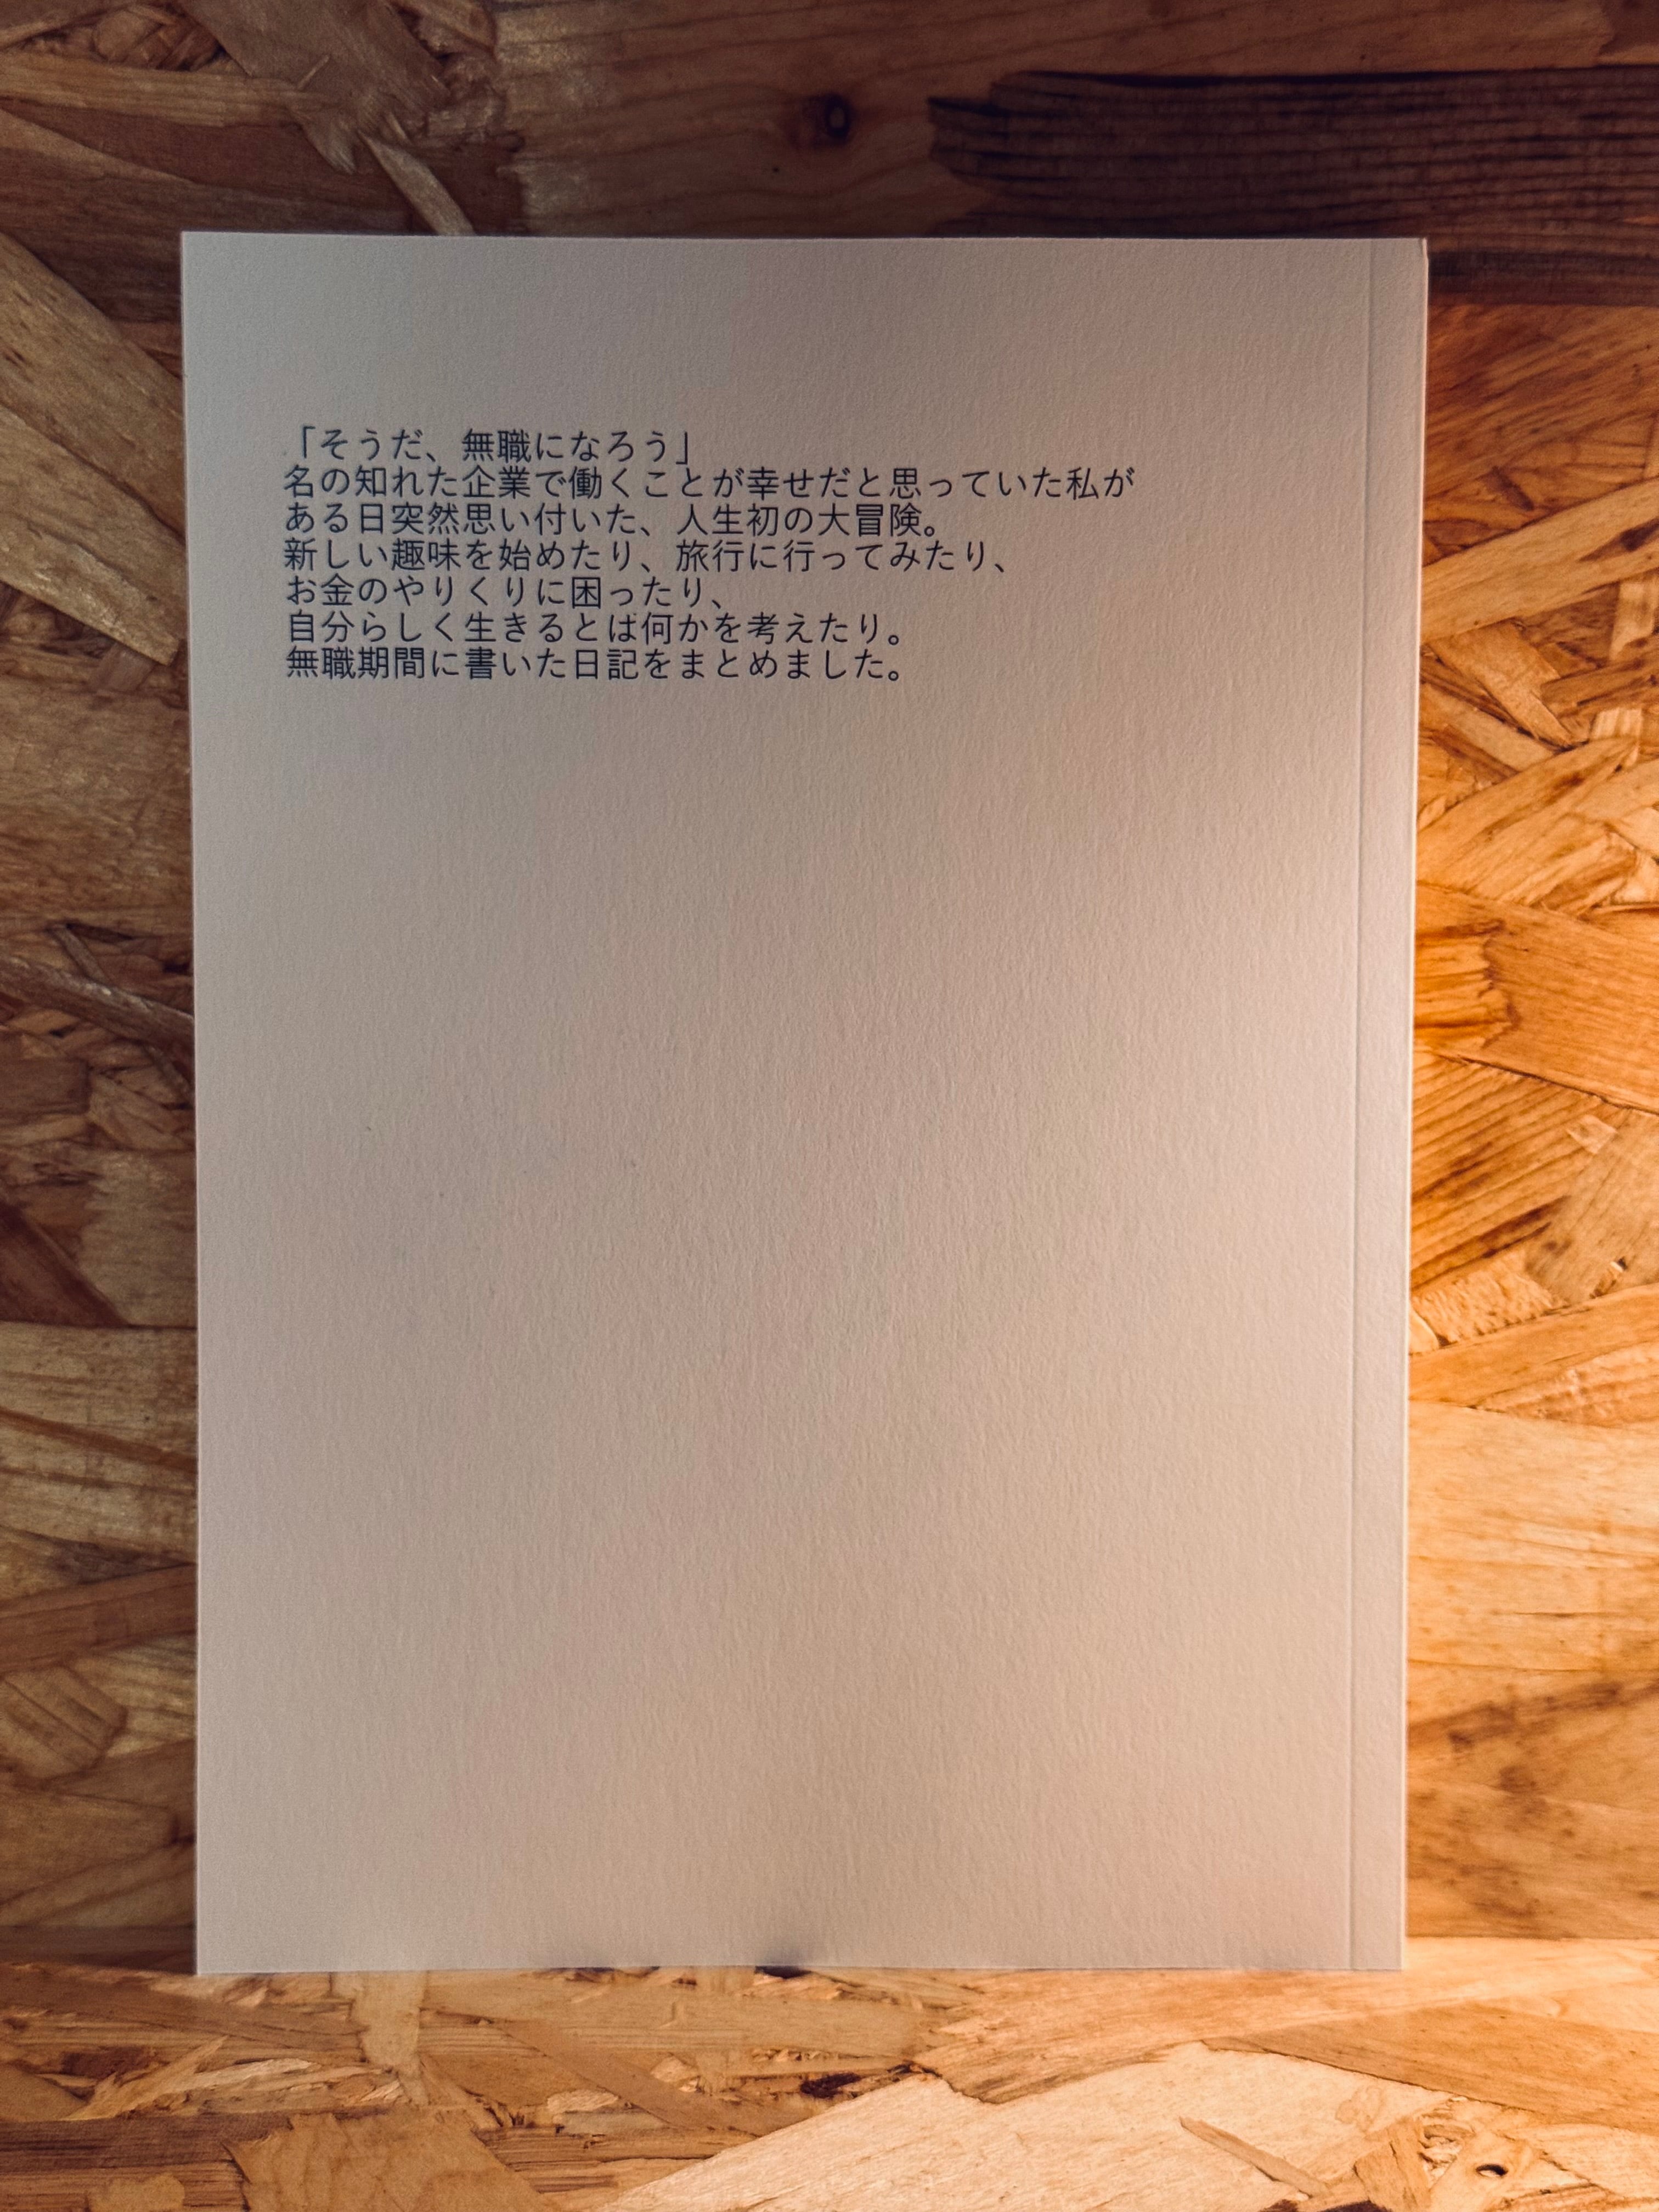 「そうだ、無職になろう」
名の知れた企業で働くことが幸せだと思っていた私が
ある日突然思い付いた、人生初の大冒険。
新しい趣味を始めたり、旅行に行ってみたり、
お金のやりくりに困ったり、
自分らしく生きるとは何かを考えたり。
無職期間に書いた日記をまとめました。